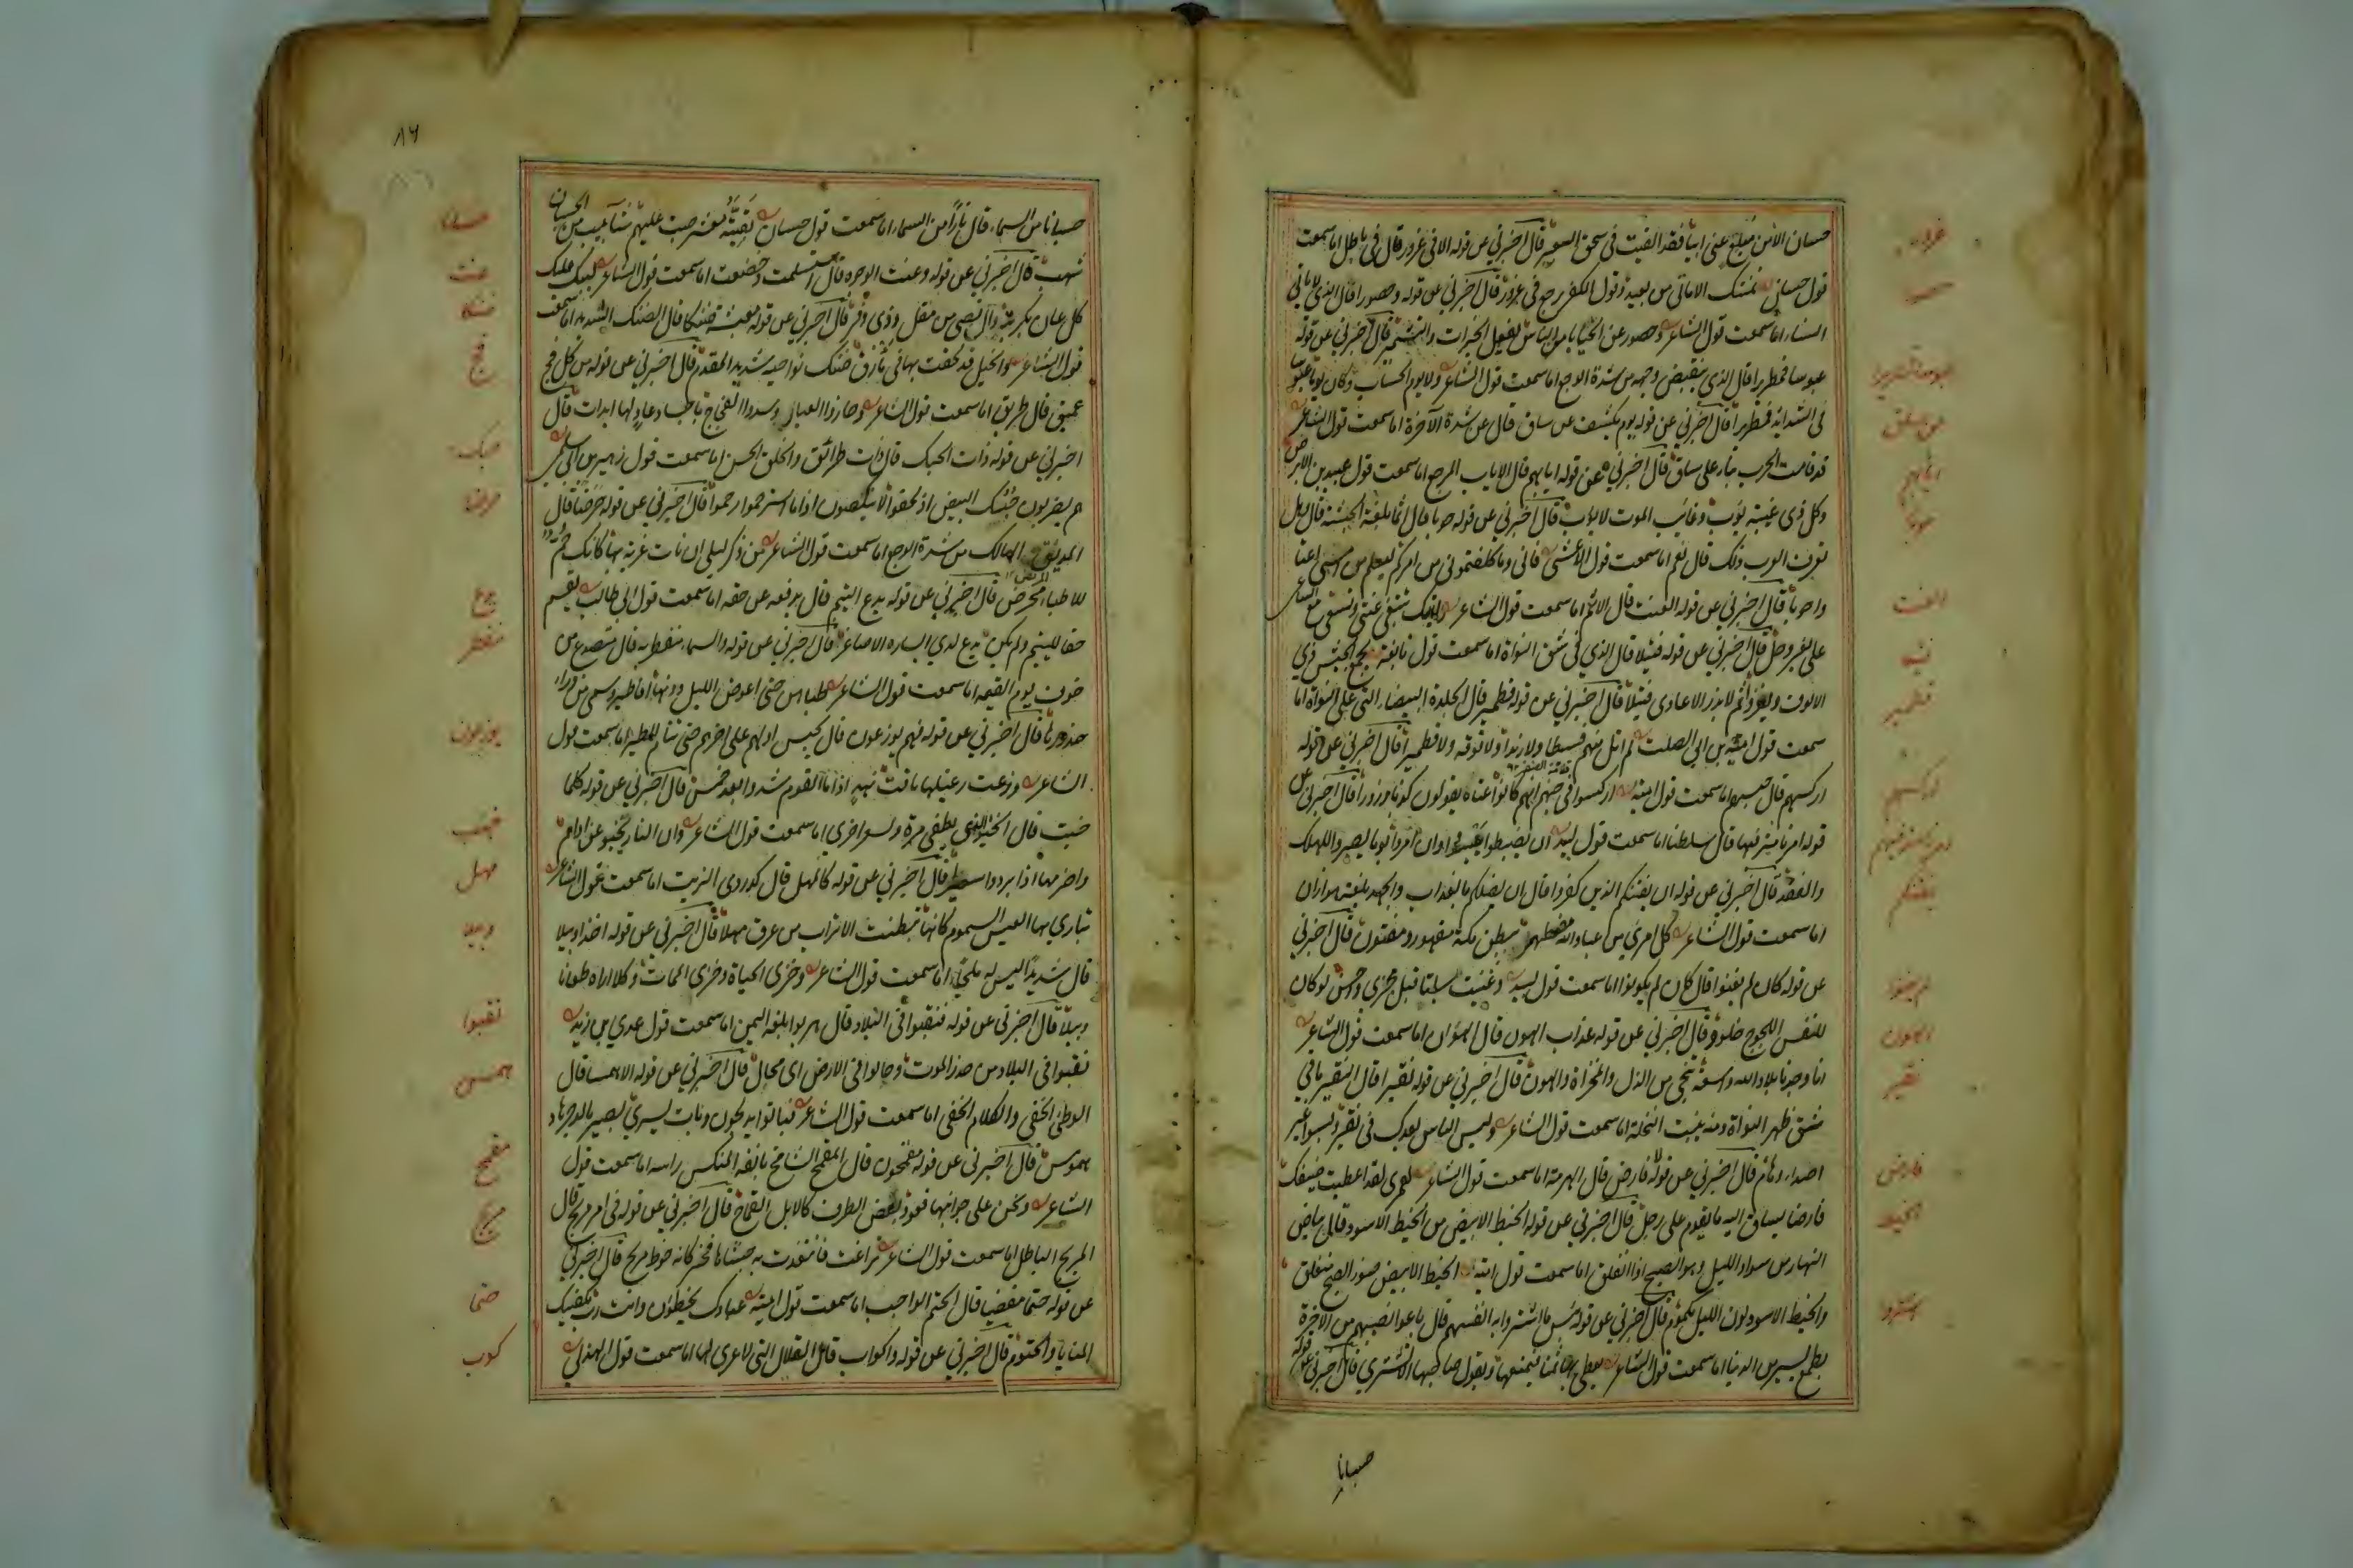 حسان الا من مبلغ عني ابيا فقد القيت في سحق السعير قال اخبرني عن قوله الا في غرور قال في باطل اما سمعت
قول حسان تمنتك الاماني من بعيد وقول الكفر يرجع في غرور قال اخبرني عن قوله وحصورا قال الذي لا ياتي
النساء اما سمعت قول الشاعر وحصور عن الخنا يامر الناس بفعل الخيرات والتشمير قال اخبرني عن قوله
عبوسا قمطريرا قال الذي ينقبض وجهه من شدة الوجع اما سمعت قول الشاعر ولا يوم الحساب وكان يوما عبوسا
في الشدايد قمطريرا قال اخبرني عن قوله يوم يكشف عن ساق قال عن شدة الآخرة اما سمعت قول الشاعر
قد قامت الحرب بنا على ساق قال اخبرني عن قوله ايابهم قال الاياب المرجع اما سمعت قول عبيد بن الابرص
وكل ذي غيبة يؤب وغائب الموت لا يؤب قال اخبرني عن قوله حوبا قال اثما بلغة الحبشة قال وهل
تعرف العرب ذلك قال نعم اما سمعت قول الاعشى فاني وما كلفتموني من امركم ليعلم من امسى اعقا
واحوبا قال اخبرني عن قوله العنت قال الاثم اما سمعت قول الشاعر رايتك تبتغي عنتي وتسعى مع الساعي
علي بغير دخل قال اخبرني عن قوله فتيلا قال الذي في شق النواة اما سمعت قول نابغة يجمع الجيش ذي
الالوف ويغزو ثم لا يزر الاعادي فتيلا قال اخبرني عن قوله قطمير قال الجلدة البيضاء التي على النواة اما
سمعت قول امية بن ابي الصلت لم انل منهم فسيطا ولا زبدا ولا فوفة ولا قطميرا قال اخبرني عن قوله
اركسهم قال حبسهم اما سمعت قول امية اركسوا في جهنم انهم كانوا عتاة يقولون كذبا وزورا قال اخبرني عن
قوله امرنا مترفيها قال سلطنا اما سمعت قول لبيد ان يغبطوا يهبطوا وان امروا يوما يصيروا للهلك
والفقد قال اخبرني عن قوله ان يفتنكم الذين كفروا قال ان يضلكم بالعذاب والجهد بلغة هوازن
اما سمعت قول الشاعر كل امرئ من عباد الله مضطهد ببطن مكة مقهور ومفتون قال اخبرني
عن قوله كان لم يغنوا قال كان لم يكونوا اما سمعت قول لبيد وغنيت سبتا قبل مجرى داحس لو كان
للنفس اللجوج خلود قال اخبرني عن قوله عذاب الهون قال الهوان اما سمعت قول الشاعر
انا وجدنا بلاد الله واسعة تنجي من الذل والمخزاة والهون قال اخبرني عن قوله نقيرا قال النقير ما في
شق ظهر النواة ومنه ينبت النخلة اما سمعت قول الشاعر وليس الناس بعدك في نقير وليسوا غير
اصداء وهام قال اخبرني عن قوله فارض قال الهرمة اما سمعت قول الشاعر لعمري لقد اعطيت ضيفك
فارضا يساق اليه ما يقوم على رجل قال اخبرني عن قوله الخيط الابيض من الخيط الاسود قال بياض
النهار من سواد الليل وهو الصبح اذا انفلق اما سمعت قول امية الخيط الابيض ضوء الصبح منفلق
والخيط الاسود لون الليل مكموم قال اخبرني عن قوله بئس ما اشتروا به انفسهم قال باعوا نصيبهم من الاخرة
بطمع يسير من الدنيا اما سمعت قول الشاعر يعطى بها ثمنا فيمنعها ويقول صاحبها الا تشتري قال اخبرني عن قوله
حسبانا
غرور
حصور
عبوسا قمطريرا
عن ساق
ايابهم
حوبا
العنت
فتيلا
قطمير
اركسهم
امرنا مترفيها
يفتنكم
لم يغنوا
الهون
نقير
فارض
الخيط
اشتروا
٨٦
حسبانا من السماء قال نارا من السماء اما سمعت قول حسان بقية معشر صبت عليهم شآبيب من الحسبان
شهب قال اخبرني عن قوله وعنت الوجوه قال استسلمت وخضعت اما سمعت قول الشاعر ليبك عليك
كل عان بكربة وآل قصي من مقل وذي وفر قال اخبرني عن قوله معيشة ضنكا قال الضنك الشديد اما سمعت
قول الشاعر والخيل قد لحقت بها في مأزق ضنك نواحيه شديد المقدم قال اخبرني عن قوله من كل فج
عميق قال طريق اما سمعت قول الشاعر وحازوا العيال وسدوا الفجاج باجساد عاد لها ابدات قال
اخبرني عن قوله ذات الحبك قال ذات طرائق والخلق الحسن اما سمعت قول زهير بن ابي سلمى
هم يضربون حبيك البيض اذ لحقوا لا ينكصون اذا ما استرحموا رحموا قال اخبرني عن قوله حرضا قال
المدنف الهالك من شدة الوجع اما سمعت قول الشاعر امن ذكر ليلى ان نات غربة بها كانك حم
للاطباء محرض قال اخبرني عن قوله يدع اليتيم قال يدفعه عن حقه اما سمعت قول ابي طالب يقسم
حقا لليتيم ولم يكن يدع لدى ايساره الاصاغر قال اخبرني عن قوله والسماء منفطر به قال متصدع من
خوف يوم القيمة اما سمعت قول الشاعر طباهن حتى اعوض الليل دونها افاطير وسمي رواء
جذورها قال اخبرني عن قوله فهم يوزعون قال يحبس اولهم على اخرهم حتى تنام الطير اما سمعت قول
الشاعر وزعت رعيلها باقب نهد اذا ما القوم شدوا بعد خمس قال اخبرني عن قوله كلما
خبت قال الخبو الذي يطفى مرة ويسعر اخرى اما سمعت قول الشاعر والنار تخبو عن اذاهم
واضرمها اذا بردوا سعيرا قال اخبرني عن قوله كالمهل قال كدردي الزيت اما سمعت قول الشاعر
تباري بها العيس السموم كانها تبطنت الاقراب من عرق مهلا قال اخبرني عن قوله اخذا وبيلا
قال شديدا ليس له ملجأ اما سمعت قول الشاعر وخزي الحياة وخزي الممات وكلا اراه طعاما
وبيلا قال اخبرني عن قوله فنقبوا في البلاد قال هربوا بلغة اليمن اما سمعت قول عدي بن زيد
نقبوا في البلاد من حذر الموت وجالوا في الارض اي مجال قال اخبرني عن قوله الا همسا قال
الوطئ الخفي والكلام الخفي اما سمعت قول الشاعر فباتوا يدلجون وبات يسري بصير بالدجى هاد
هموس قال اخبرني عن قوله مقمحون قال المقمح الشامخ بانفه المنكس راسه اما سمعت قول
الشاعر ونحن على جوانبها قعود نغض الطرف كالابل القماح قال اخبرني عن قوله في امر مريج قال
المريج الباطل اما سمعت قول الشاعر فراغت فانتفذت به حشاها فخر كانه خوط مريج قال اخبرني
عن قوله حتما مقضيا قال الحتم الواجب اما سمعت قول امية عبادك يخطئون وانت رب بكفيك
المنايا والحتوم قال اخبرني عن قوله واكواب قال القلال التي لا عرى لها اما سمعت قول الهذلي
حسبانا
عنت
ضنكا
فج
حبك
حرضا
يدع
منفطر
يوزعون
خبت
مهل
وبيلا
نقبوا
همس
مقمح
مريج
حتما
كوب